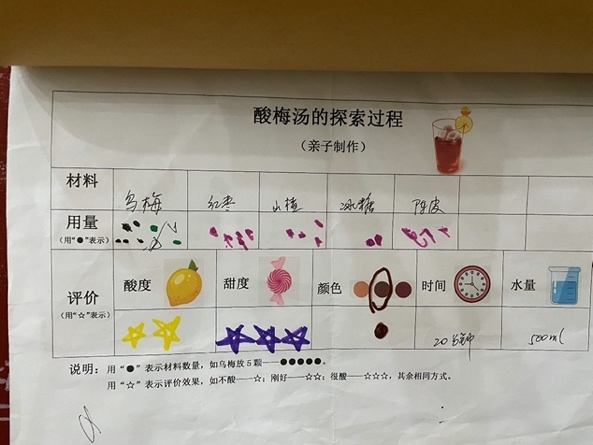 酸梅汤的探索过程
（亲子制作）
材料 乌梅 红枣 山楂 冰糖 陈皮
用量
（用“●”表示）
评价 酸度 甜度 颜色 时间 水量
（用“☆”表示）
20分钟 500ml
说明：用“●”表示材料数量，如乌梅放5颗——●●●●●。
用“☆”表示评价效果，如不酸——☆；刚好——☆☆；很酸——☆☆☆，其余相同方式。